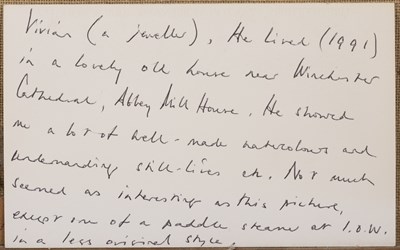 Vivian (a jeweller), He lived (1991)
in a lovely old house near Winchester
Cathedral, Abbey Mill House. He showed
me a lot of well-made watercolours and
undemanding still-lives etc. Not much
seemed as interesting as this picture,
except one of a paddle steamer at I.O.W.
in a less original style.